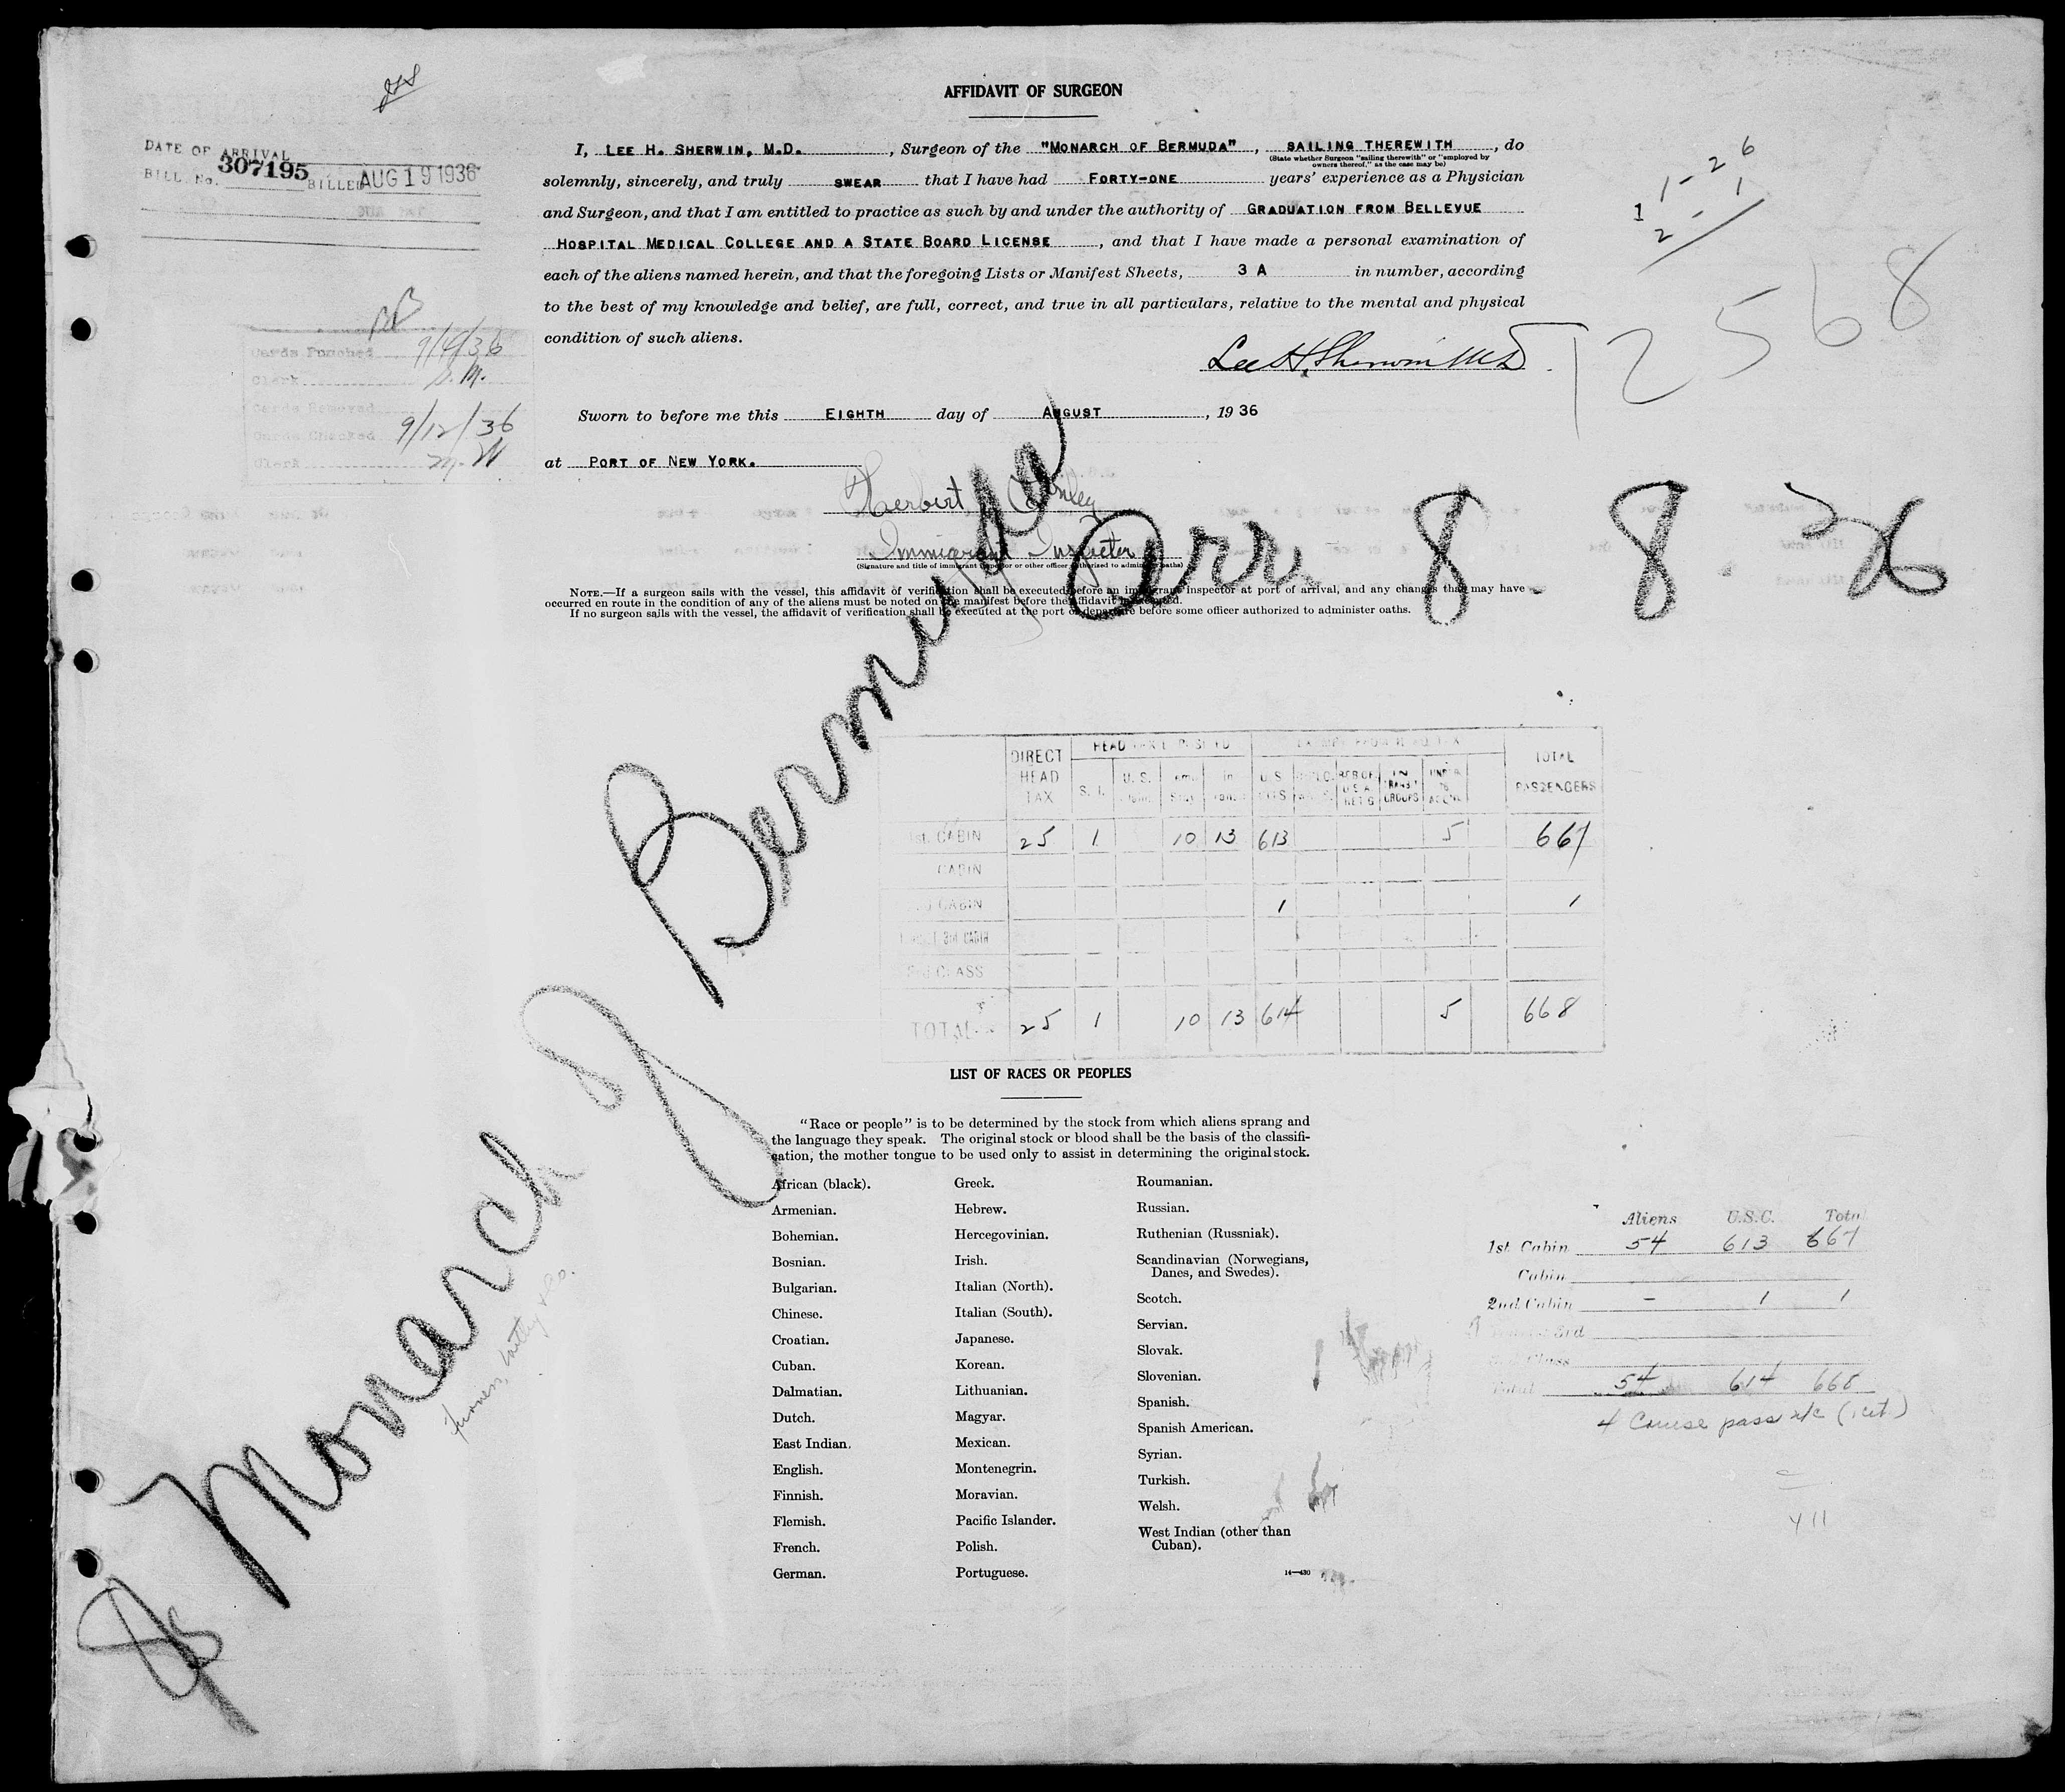 AFFIDAVIT OF SURGEON
DATE OF ARRIVAL
BILL No. 307195 BILLED AUG 19 1936
I, LEE H. SHERWIN, M.D. , Surgeon of the "MONARCH OF BERMUDA" , SAILING THEREWITH , do
(State whether Surgeon "sailing therewith" or "employed by
owners thereof," as the case may be)
solemnly, sincerely, and truly SWEAR that I have had FORTY-ONE years' experience as a Physician
and Surgeon, and that I am entitled to practice as such by and under the authority of GRADUATION FROM BELLEVUE
HOSPITAL MEDICAL COLLEGE AND A STATE BOARD LICENSE , and that I have made a personal examination of
each of the aliens named herein, and that the foregoing Lists or Manifest Sheets, 3 A in number, according
to the best of my knowledge and belief, are full, correct, and true in all particulars, relative to the mental and physical
condition of such aliens.
Lee H. Sherwin M.D.
1-26
1 2-1
T2568
Cards Punched 9/4/36
Clerk S.M.
Cards Removed
Cards Checked 9/12/36
Clerk M.W
Sworn to before me this EIGHTH day of AUGUST , 19 36
at PORT OF NEW YORK.
Herbert
Immigrant Inspector
(Signature and title of immigrant inspector or other officer authorized to administer oaths)
Arr. 8 8 36
NOTE.—If a surgeon sails with the vessel, this affidavit of verification shall be executed before an immigrant inspector at port of arrival, and any changes that may have
occurred en route in the condition of any of the aliens must be noted on the manifest before the affidavit is executed.
If no surgeon sails with the vessel, the affidavit of verification shall be executed at the port of departure before some officer authorized to administer oaths.
SS Monarch of Bermuda
Furness, Withy & Co.
DIRECT HEAD TAX S. I. U.S. U.S. IN TRANSIT GROUPS UNDER 16 TOTAL PASSENGERS
1st. CABIN 25 1 10 13 613 5 667
CABIN
CABIN 1 1
3rd CABIN
CLASS
TOTAL 25 1 10 13 614 5 668
LIST OF RACES OR PEOPLES
"Race or people" is to be determined by the stock from which aliens sprang and
the language they speak. The original stock or blood shall be the basis of the classifi-
cation, the mother tongue to be used only to assist in determining the original stock.
African (black).
Armenian.
Bohemian.
Bosnian.
Bulgarian.
Chinese.
Croatian.
Cuban.
Dalmatian.
Dutch.
East Indian.
English.
Finnish.
Flemish.
French.
German.
Greek.
Hebrew.
Hercegovinian.
Irish.
Italian (North).
Italian (South).
Japanese.
Korean.
Lithuanian.
Magyar.
Mexican.
Montenegrin.
Moravian.
Pacific Islander.
Polish.
Portuguese.
Roumanian.
Russian.
Ruthenian (Russniak).
Scandinavian (Norwegians,
Danes, and Swedes).
Scotch.
Servian.
Slovak.
Slovenian.
Spanish.
Spanish American.
Syrian.
Turkish.
Welsh.
West Indian (other than
Cuban).
14—430
Aliens U.S.C. Total
1st. Cabin 54 613 667
Cabin
2nd Cabin - 1 1
3rd
Class
Total 54 614 668
4 Cruise pass